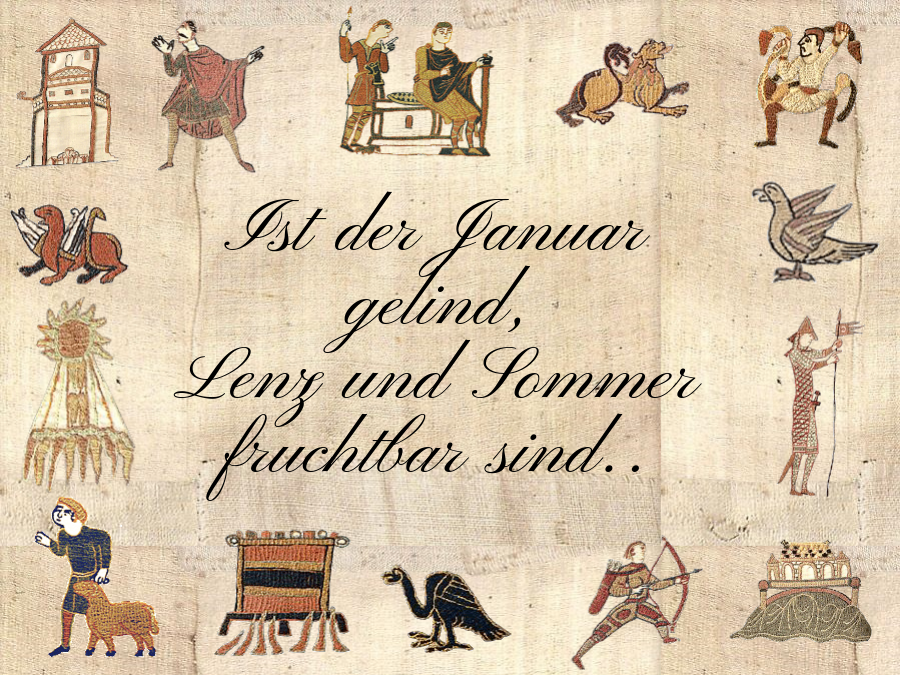 Ist der Januar
gelind,
Lenz und Sommer
fruchtbar sind..